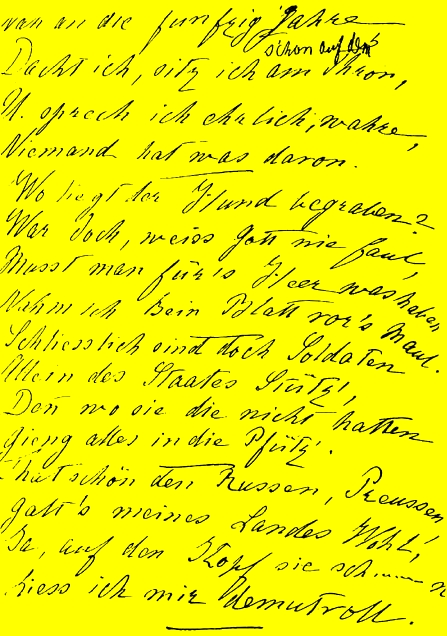 nan an die funfzig Jahre
schon auf dem
Dacht ich, sitz ich am Thron,
U. sprech ich ehrlich, wahre,
Niemand hat was davon.
Wo liegt der Hund begraben?
War doch, weiss Gott nie faul,
Musst man für's Heer was haben
Nahm ich kein Blatt vor's Maul.
Schliesslich sind doch Soldaten
Allein des Staates Stütz',
Den wo sie die nicht hatten
Gieng alles in die Pfütz'.
That schön den Russen, Preussen
Galt's meines Landes Wohl,
Ja, auf den Kopf sie sch......n
Liess ich mir demutvoll.